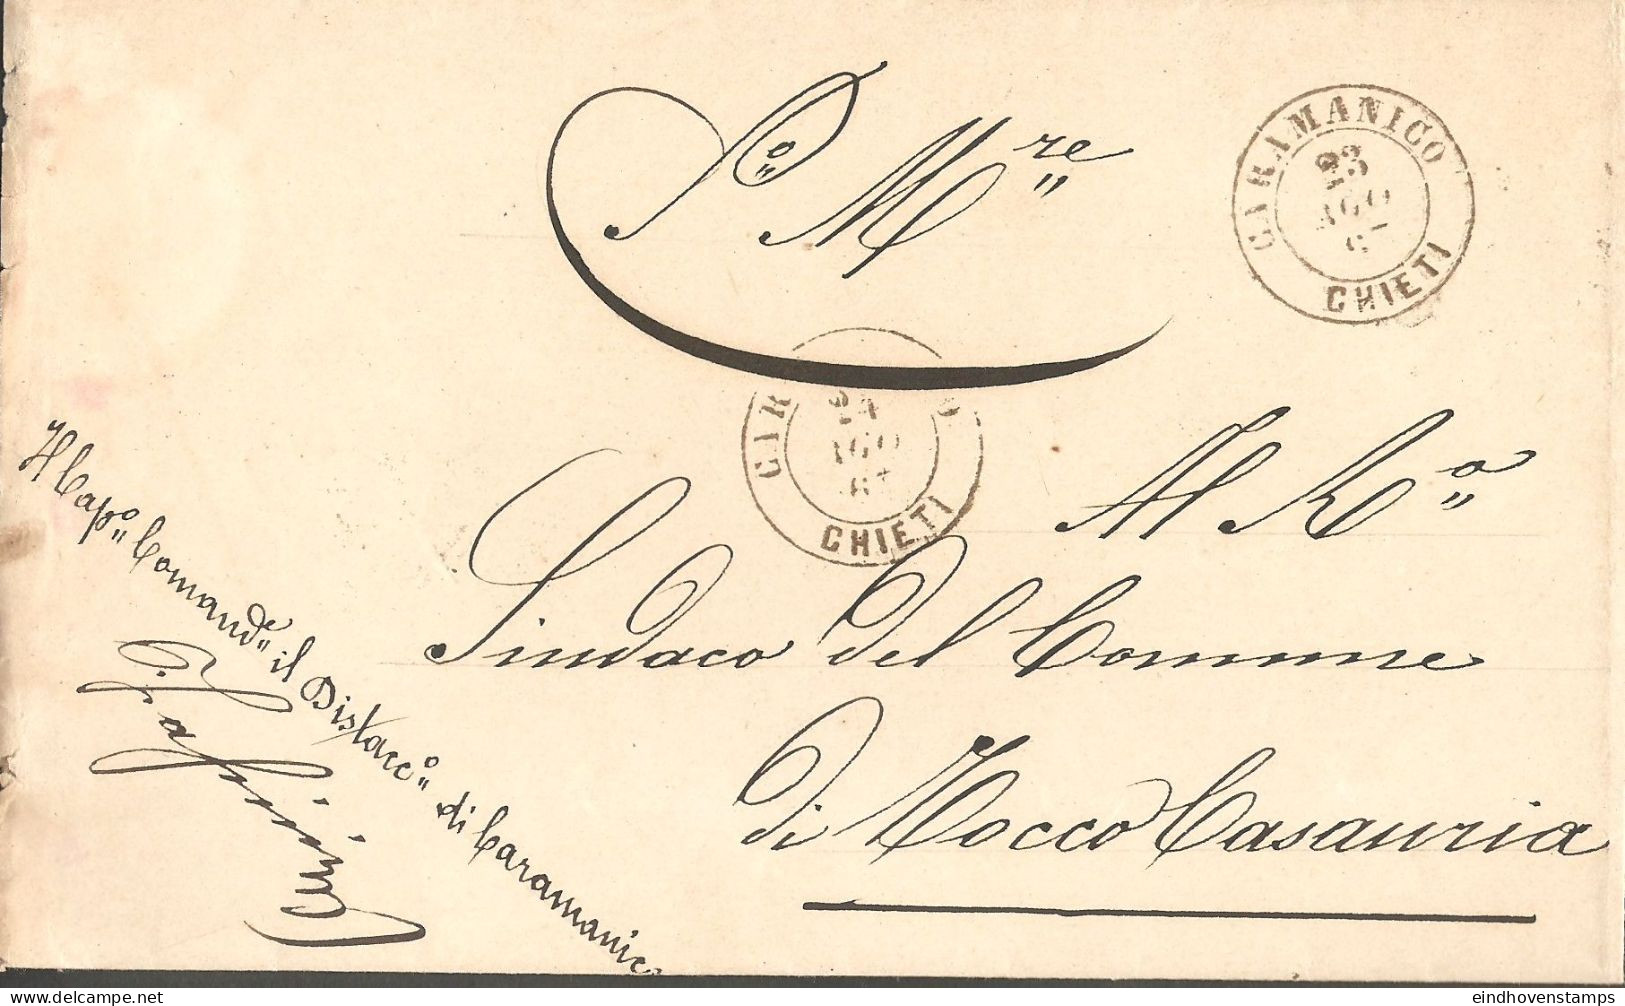 So Mre
CARAMANICO
23
AGO
CHIETI
CAR O
24
AGO
CHIETI
Al No
Sindaco del Comune
di Tocco Casauria
Il Capo Comande il Distacco di Caramanico
eindhovenstamps